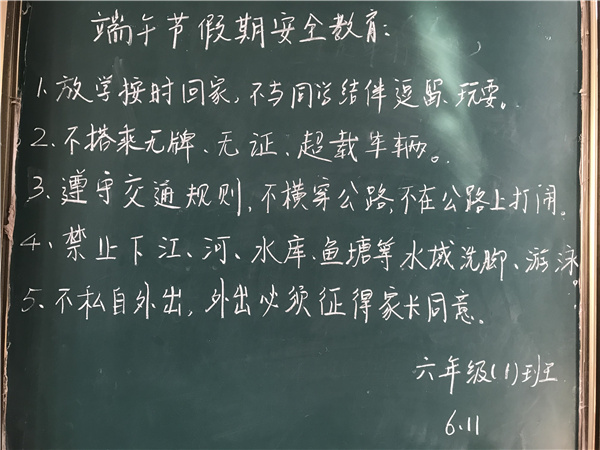 端午节假期安全教育:
1、放学按时回家,不与同学结伴逗留、玩耍。
2、不搭乘无牌、无证、超载车辆。
3、遵守交通规则,不横穿公路,不在公路上打闹。
4、禁止下江、河、水库、鱼塘等水域洗脚、游泳。
5、不私自外出,外出必须征得家长同意。
六年级(1)班
6.11